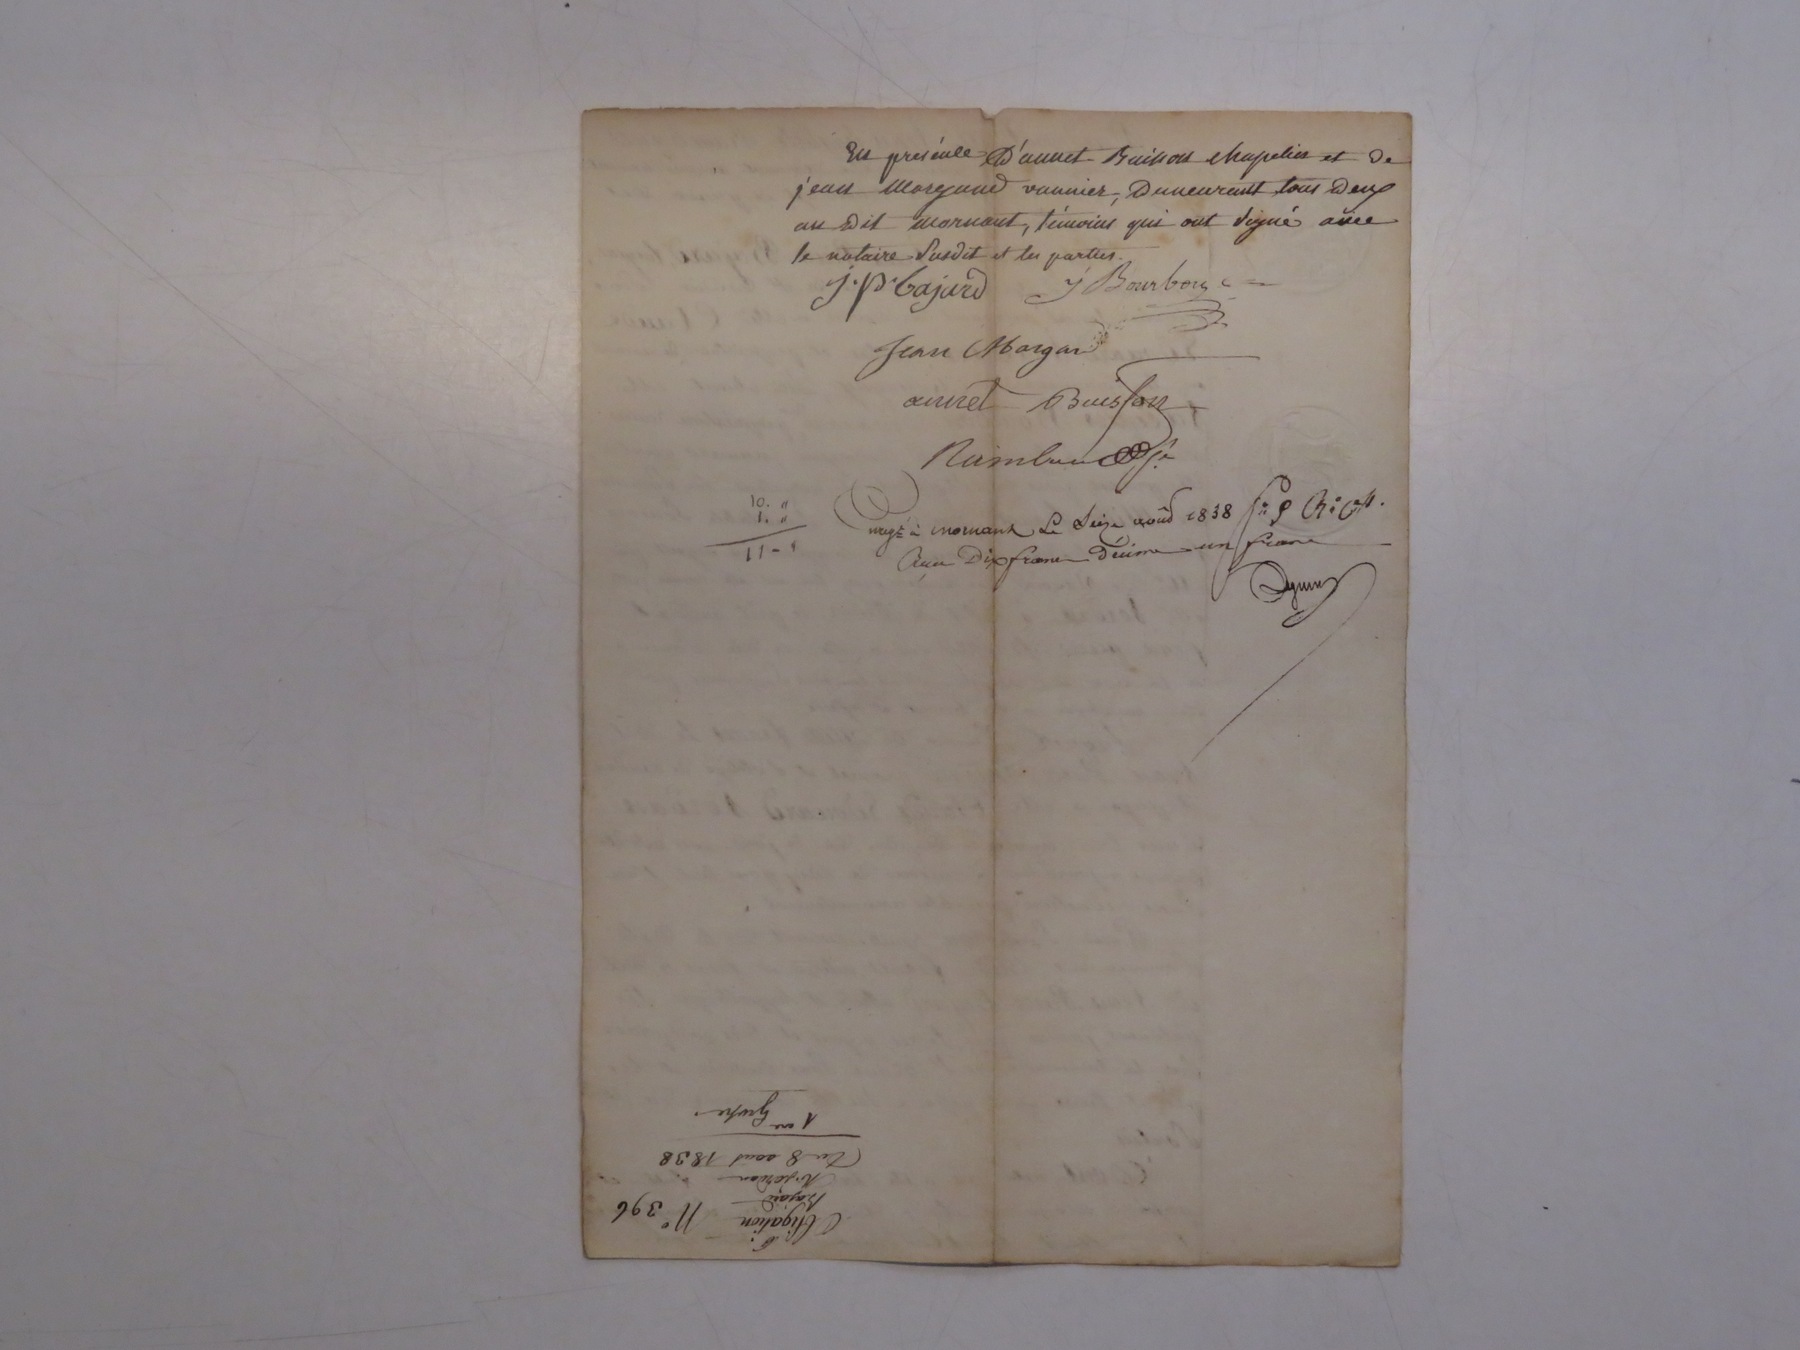 En présence D'annet Buisson chapelier et de
jean Morgand vannier, Demeurant tous Deux
au Dit Mornant, témoins qui ont signé avec
le notaire susdit et les parties.
J. P. Bajard J Bourbon
Jean Morgand
annet Buisson
10. "
1. "
11 - "
Enregé à mornant Le Seize aoûd 1838
Reçu Dix francs Décime un franc
Obligation
N° 396
Bajard
Du 8 aout 1838
1ere Grosse